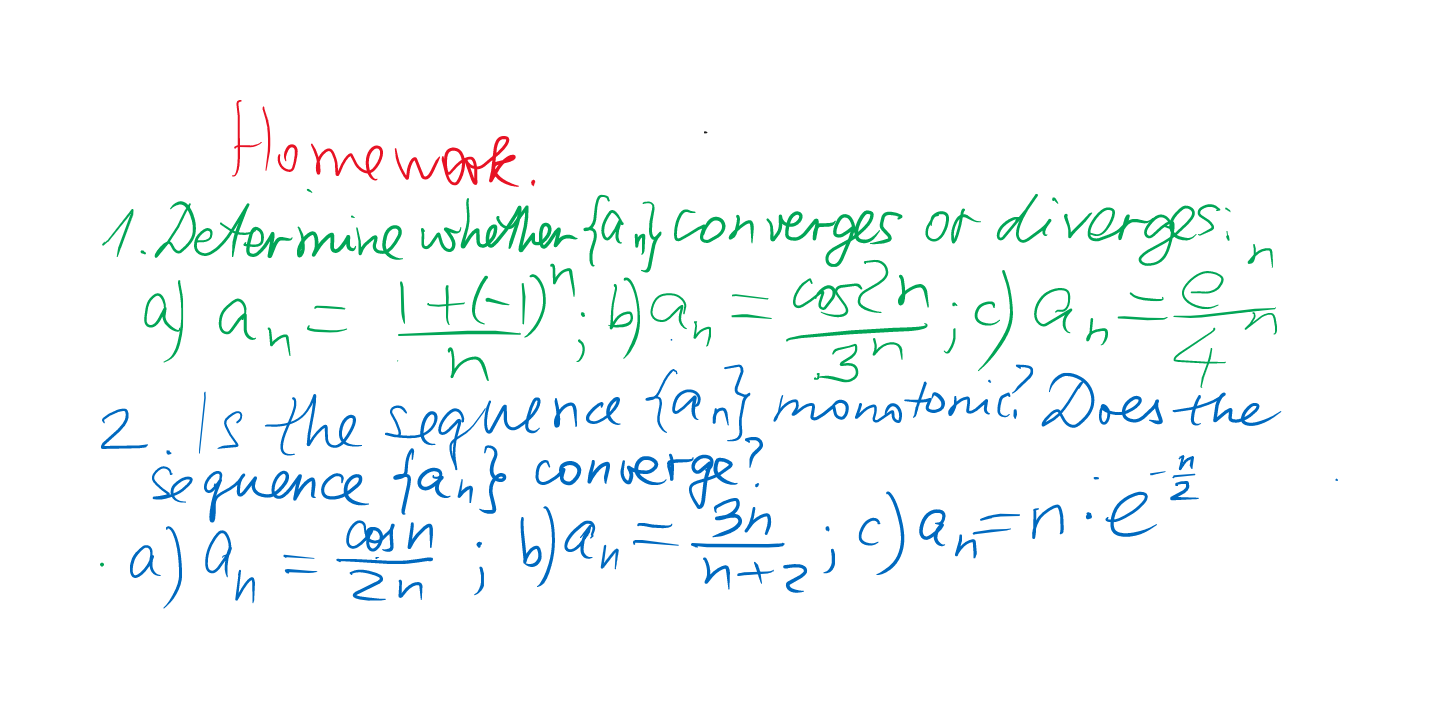 Homework.
1. Determine whether {aₙ} converges or diverges:
a) aₙ = (1+(-1)ⁿ)/n ; b) aₙ = cos2n/3ⁿ ; c) aₙ = eⁿ/4ⁿ
2. Is the sequence {aₙ} monotonic? Does the
sequence {aₙ} converge?
a) aₙ = cosn/2n ; b) aₙ = 3n/(n+2) ; c) aₙ = n·e^(-n/2)